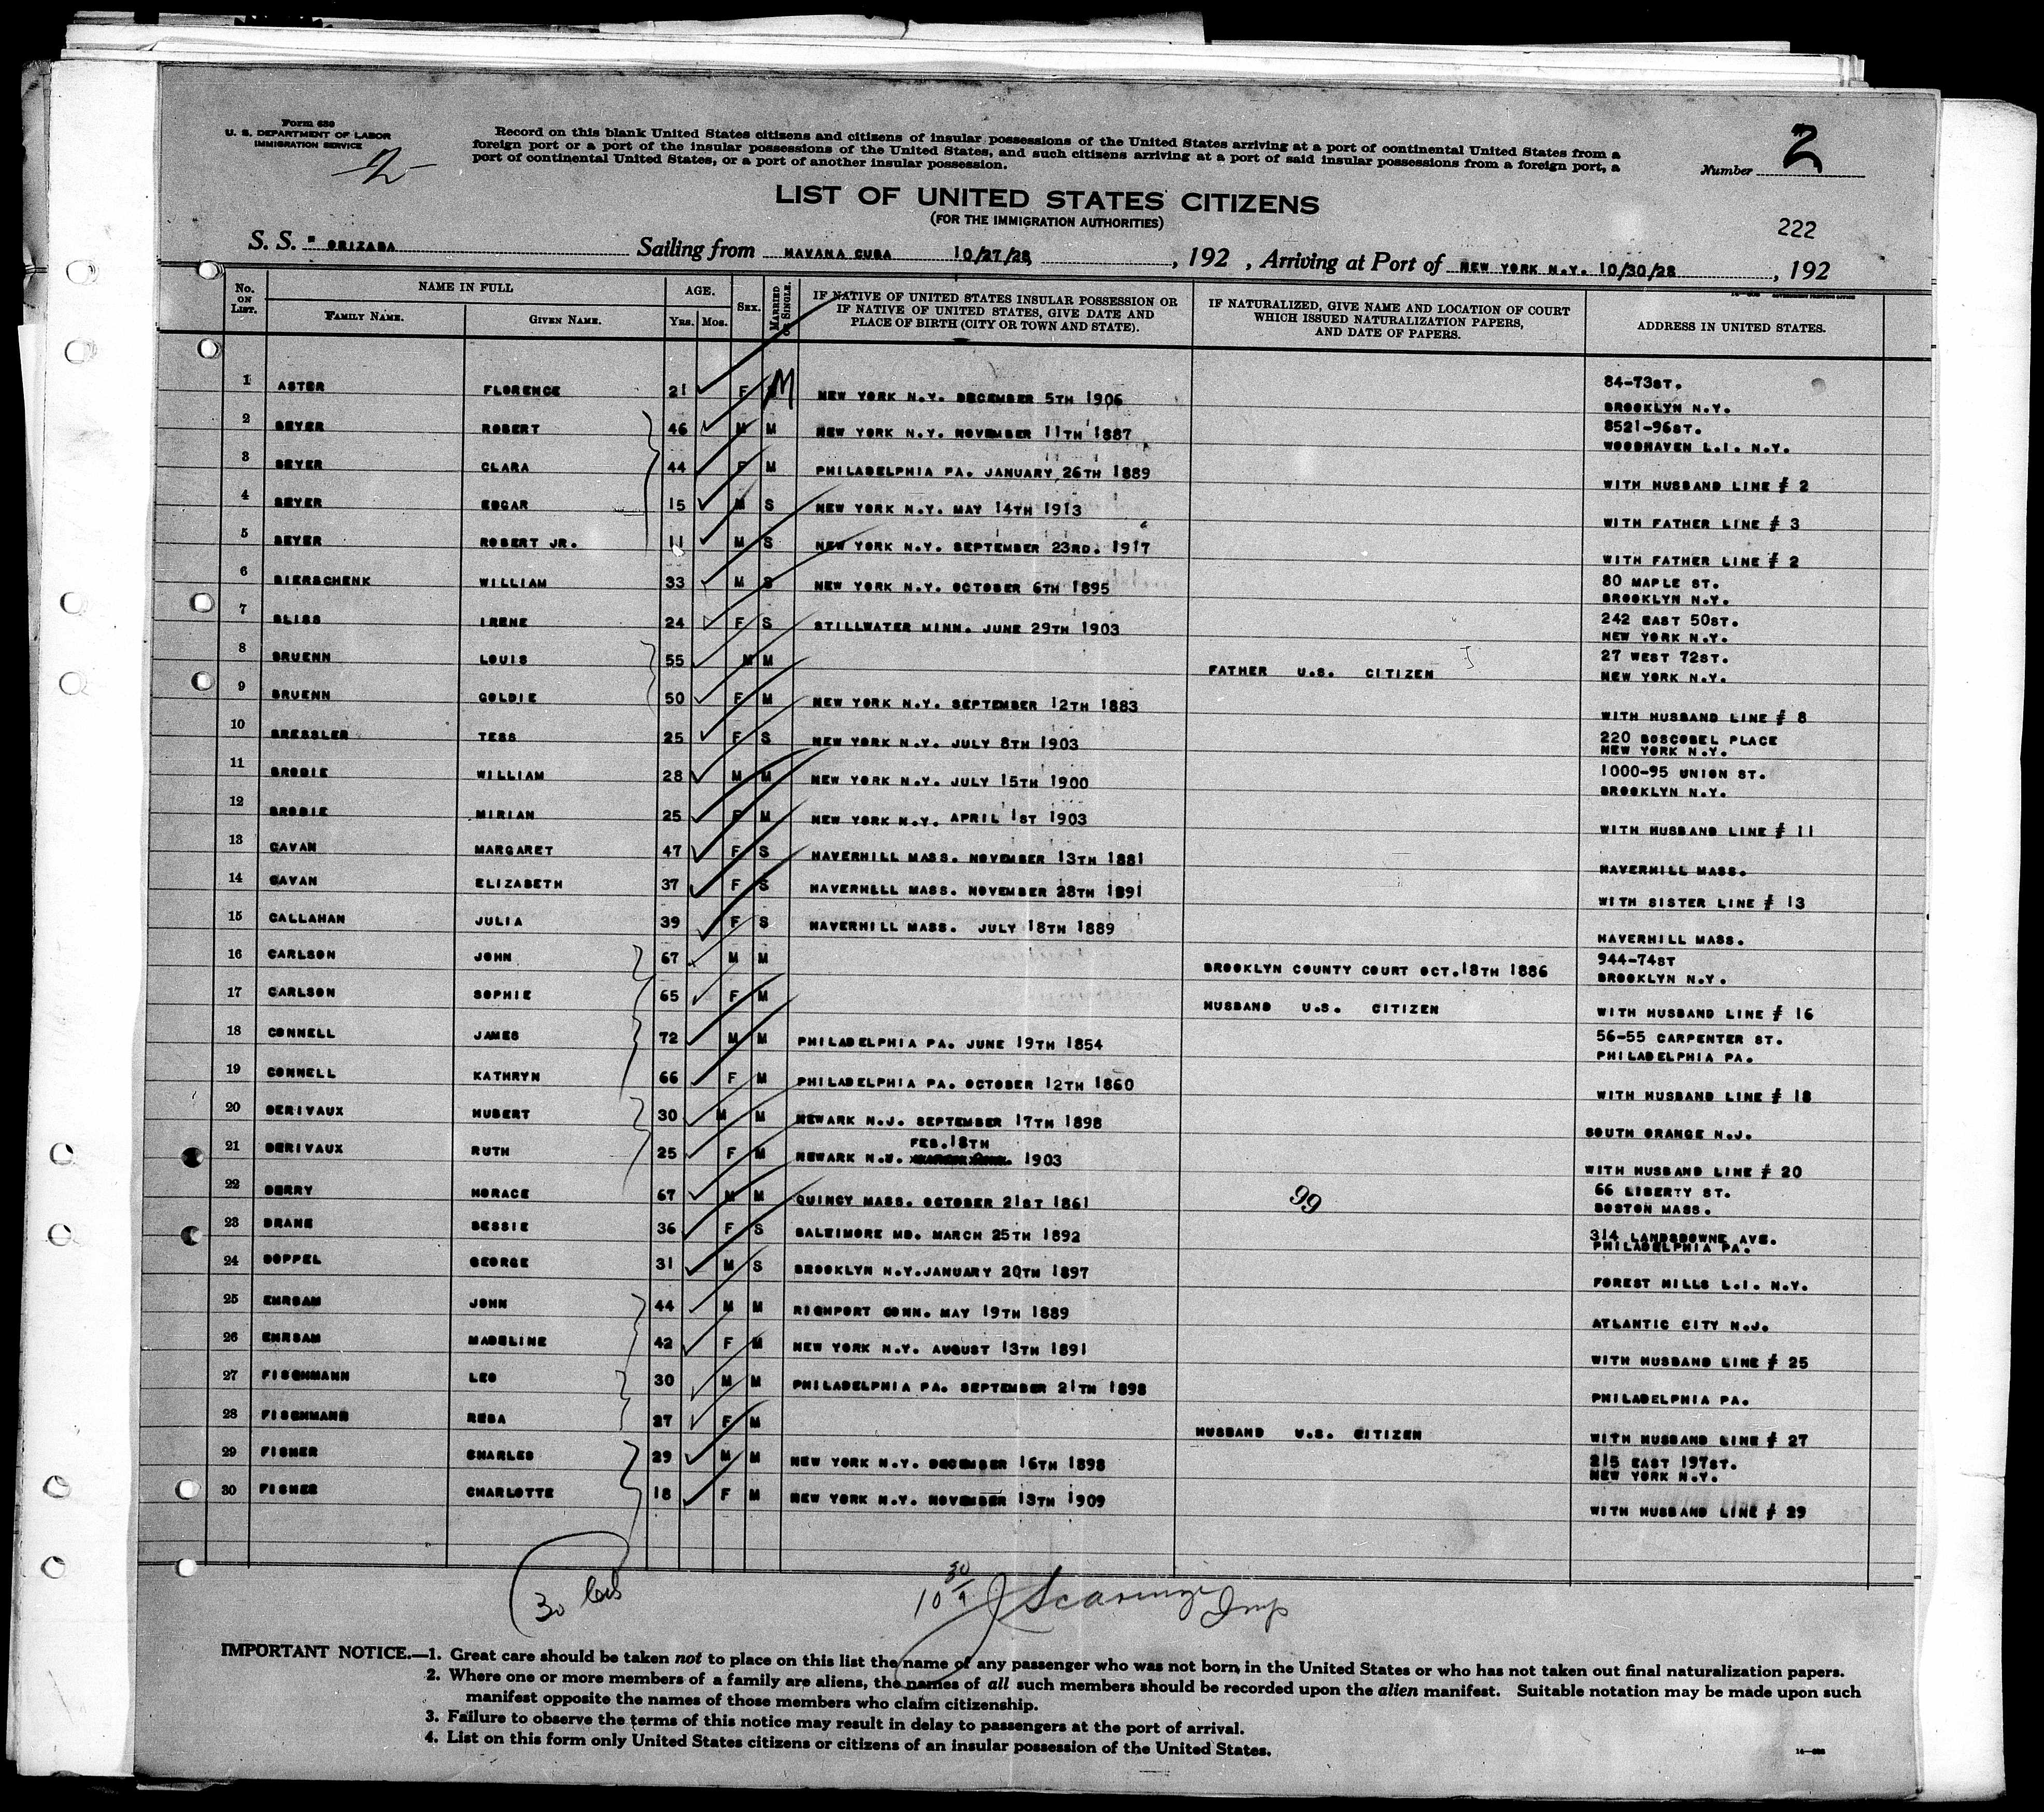 Form 630
U. S. DEPARTMENT OF LABOR
IMMIGRATION SERVICE
2
Record on this blank United States citizens and citizens of insular possessions of the United States arriving at a port of continental United States from a
foreign port or a port of the insular possessions of the United States, and such citizens arriving at a port of said insular possessions from a foreign port, a
port of continental United States, or a port of another insular possession.
Number 2
LIST OF UNITED STATES CITIZENS
(FOR THE IMMIGRATION AUTHORITIES)
222
S. S. " ORIZABA Sailing from HAVANA CUBA 10/27/28, , 192 , Arriving at Port of NEW YORK N.Y. 10/30/28 , 192
No. ON LIST. NAME IN FULL FAMILY NAME. GIVEN NAME. AGE. Yrs. Mos. SEX. MARRIED OR SINGLE. IF NATIVE OF UNITED STATES INSULAR POSSESSION OR IF NATIVE OF UNITED STATES, GIVE DATE AND PLACE OF BIRTH (CITY OR TOWN AND STATE). IF NATURALIZED, GIVE NAME AND LOCATION OF COURT WHICH ISSUED NATURALIZATION PAPERS, AND DATE OF PAPERS. ADDRESS IN UNITED STATES.
1 ASTER FLORENCE 21 F M NEW YORK N.Y. DECEMBER 5TH 1906 84-73ST. BROOKLYN N.Y.
2 BEYER ROBERT 46 M M NEW YORK N.Y. NOVEMBER 11TH 1887 8521-96ST. WOODHAVEN L.I. N.Y.
3 BEYER CLARA 44 F M PHILADELPHIA PA. JANUARY 26TH 1889 WITH HUSBAND LINE # 2
4 BEYER EDGAR 15 M S NEW YORK N.Y. MAY 14TH 1913 WITH FATHER LINE # 3
5 BEYER ROBERT JR. 11 M S NEW YORK N.Y. SEPTEMBER 23RD. 1917 WITH FATHER LINE # 2
6 BIERSCHENK WILLIAM 33 M S NEW YORK N.Y. OCTOBER 6TH 1895 80 MAPLE ST. BROOKLYN N.Y.
7 BLISS IRENE 24 F S STILLWATER MINN. JUNE 29TH 1903 242 EAST 50ST. NEW YORK N.Y.
8 BRUENN LOUIS 55 M M FATHER U.S. CITIZEN 27 WEST 72ST. NEW YORK N.Y.
9 BRUENN GOLDIE 50 F M NEW YORK N.Y. SEPTEMBER 12TH 1883 WITH HUSBAND LINE # 8
10 BRESSLER TESS 25 F S NEW YORK N.Y. JULY 8TH 1903 220 BOSCOBEL PLACE NEW YORK N.Y.
11 BRODIE WILLIAM 28 M M NEW YORK N.Y. JULY 15TH 1900 1000-95 UNION ST. BROOKLYN N.Y.
12 BRODIE MIRIAN 25 F M NEW YORK N.Y. APRIL 1ST 1903 WITH HUSBAND LINE # 11
13 CAVAN MARGARET 47 F S HAVERHILL MASS. NOVEMBER 13TH 1881 HAVERHILL MASS.
14 CAVAN ELIZABETH 37 F S HAVERHLLL MASS. NOVEMBER 28TH 1891 WITH SISTER LINE # 13
15 CALLAHAN JULIA 39 F S HAVERHILL MASS. JULY 18TH 1889 HAVERHILL MASS.
16 CARLSON JOHN 67 M M BROOKLYN COUNTY COURT OCT.18TH 1886 944-74ST BROOKLYN N.Y.
17 CARLSON SOPHIE 65 F M HUSBAND U.S. CITIZEN WITH HUSBAND LINE # 16
18 CONNELL JAMES 72 M M PHILADELPHIA PA. JUNE 19TH 1854 56-55 CARPENTER ST. PHILADELPHIA PA.
19 CONNELL KATHRYN 66 F M PHILADELPHIA PA. OCTOBER 12TH 1860 WITH HUSBAND LINE # 18
20 DERIVAUX HUBERT 30 M M NEWARK N.J. SEPTEMBER 17TH 1898 SOUTH ORANGE N.J.
FEB.18TH
21 DERIVAUX RUTH 25 F M NEWARK N.J. 1903 WITH HUSBAND LINE # 20
22 DERRY HORACE 67 M M QUINCY MASS. OCTOBER 21ST 1861 99 66 LIBERTY ST. BOSTON MASS.
23 DRANE BESSIE 36 F S BALTIMORE MD. MARCH 25TH 1892 314 LANDSDOWNE AVE. PHILADELPHIA PA.
24 DOPPEL GEORGE 31 M S BROOKLYN N.Y.JANUARY 20TH 1897 FOREST HILLS L.I. N.Y.
25 EHRSAM JOHN 44 M M RIGHPORT CONN. MAY 19TH 1889 ATLANTIC CITY N.J.
26 EHRSAM MADELINE 42 F M NEW YORK N.Y. AUGUST 13TH 1891 WITH HUSBAND LINE # 25
27 FISCHMANN LEO 30 M M PHILADELPHIA PA. SEPTEMBER 21TH 1898 PHILADELPHIA PA.
28 FISCHMANN REBA 27 F M HUSBAND U.S. CITIZEN WITH HUSBAND LINE # 27
29 FISHER CHARLES 29 M M NEW YORK N.Y. DECEMBER 16TH 1898 215 EAST 197ST. NEW YORK N.Y.
30 FISHER CHARLOTTE 18 F M NEW YORK N.Y. NOVEMBER 13TH 1909 WITH HUSBAND LINE # 29
30
10 30
IMPORTANT NOTICE.—1. Great care should be taken not to place on this list the name of any passenger who was not born in the United States or who has not taken out final naturalization papers.
2. Where one or more members of a family are aliens, the names of all such members should be recorded upon the alien manifest. Suitable notation may be made upon such
manifest opposite the names of those members who claim citizenship.
3. Failure to observe the terms of this notice may result in delay to passengers at the port of arrival.
4. List on this form only United States citizens or citizens of an insular possession of the United States.